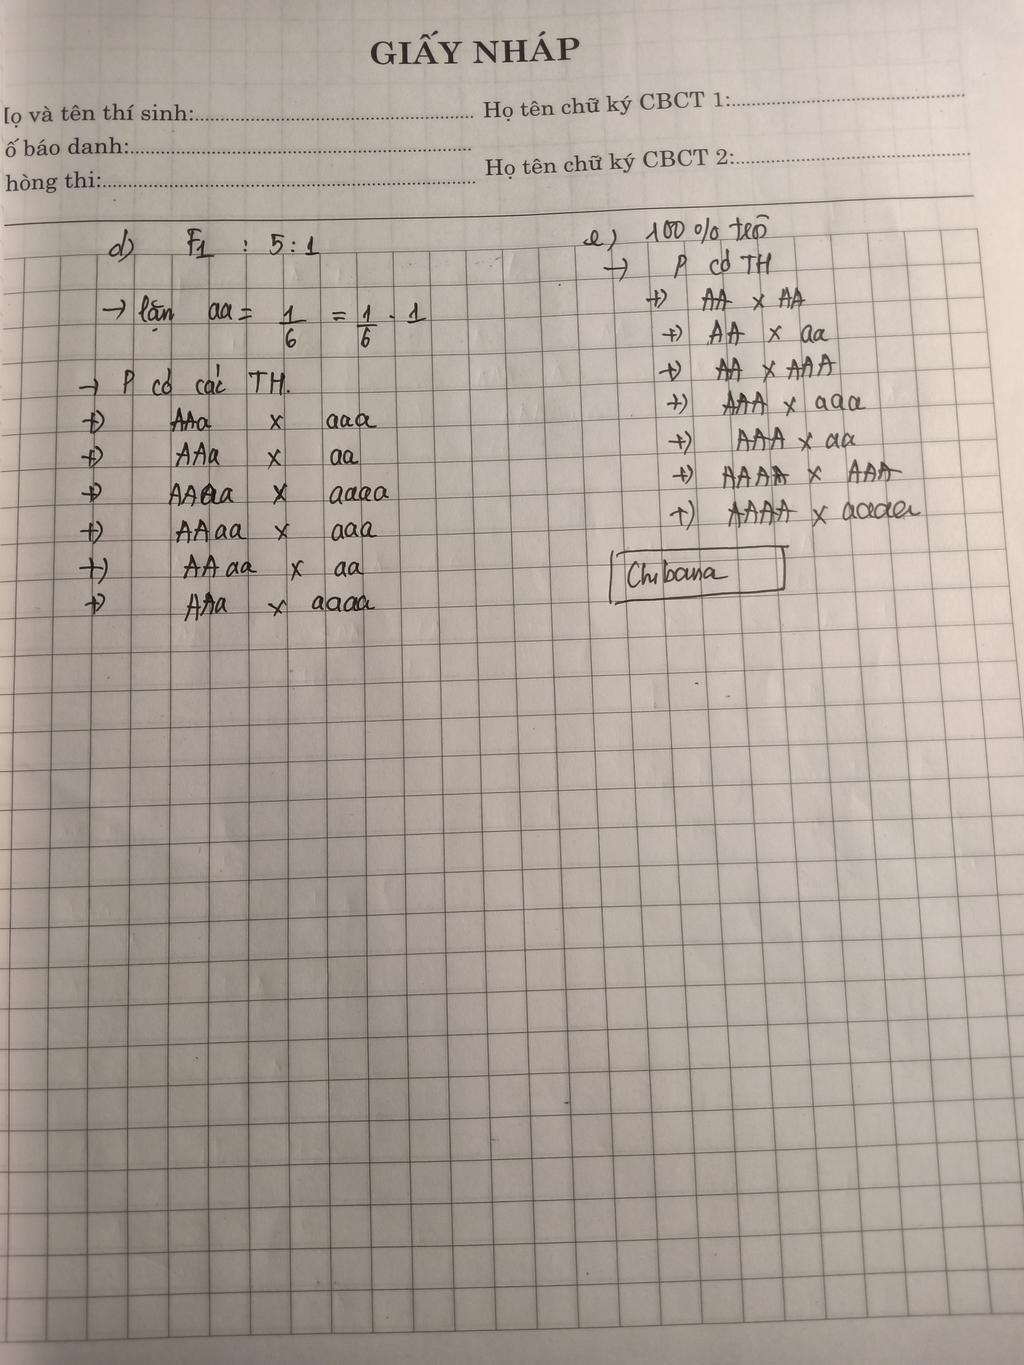 GIẤY NHÁP
Họ và tên thí sinh:
ố báo danh:
hòng thi:
Họ tên chữ ký CBCT 1:
Họ tên chữ ký CBCT 2:
d) F1 : 5:1
→ lặn aa = 1/6 = 1/6 . 1
→ P có các TH.
+) AAa x aaa
+) AAa x aa
+) AAaa x aaaa
+) AAaa x aaa
+) AAaa x aa
+) AAa x aaaa
e) 100% trội
→ P có TH
+) AA x AA
+) AA x aa
+) AA x AAA
+) AAA x aaa
+) AAA x aa
+) AAAA x AAA
+) AAAA x aaaa
Chibana